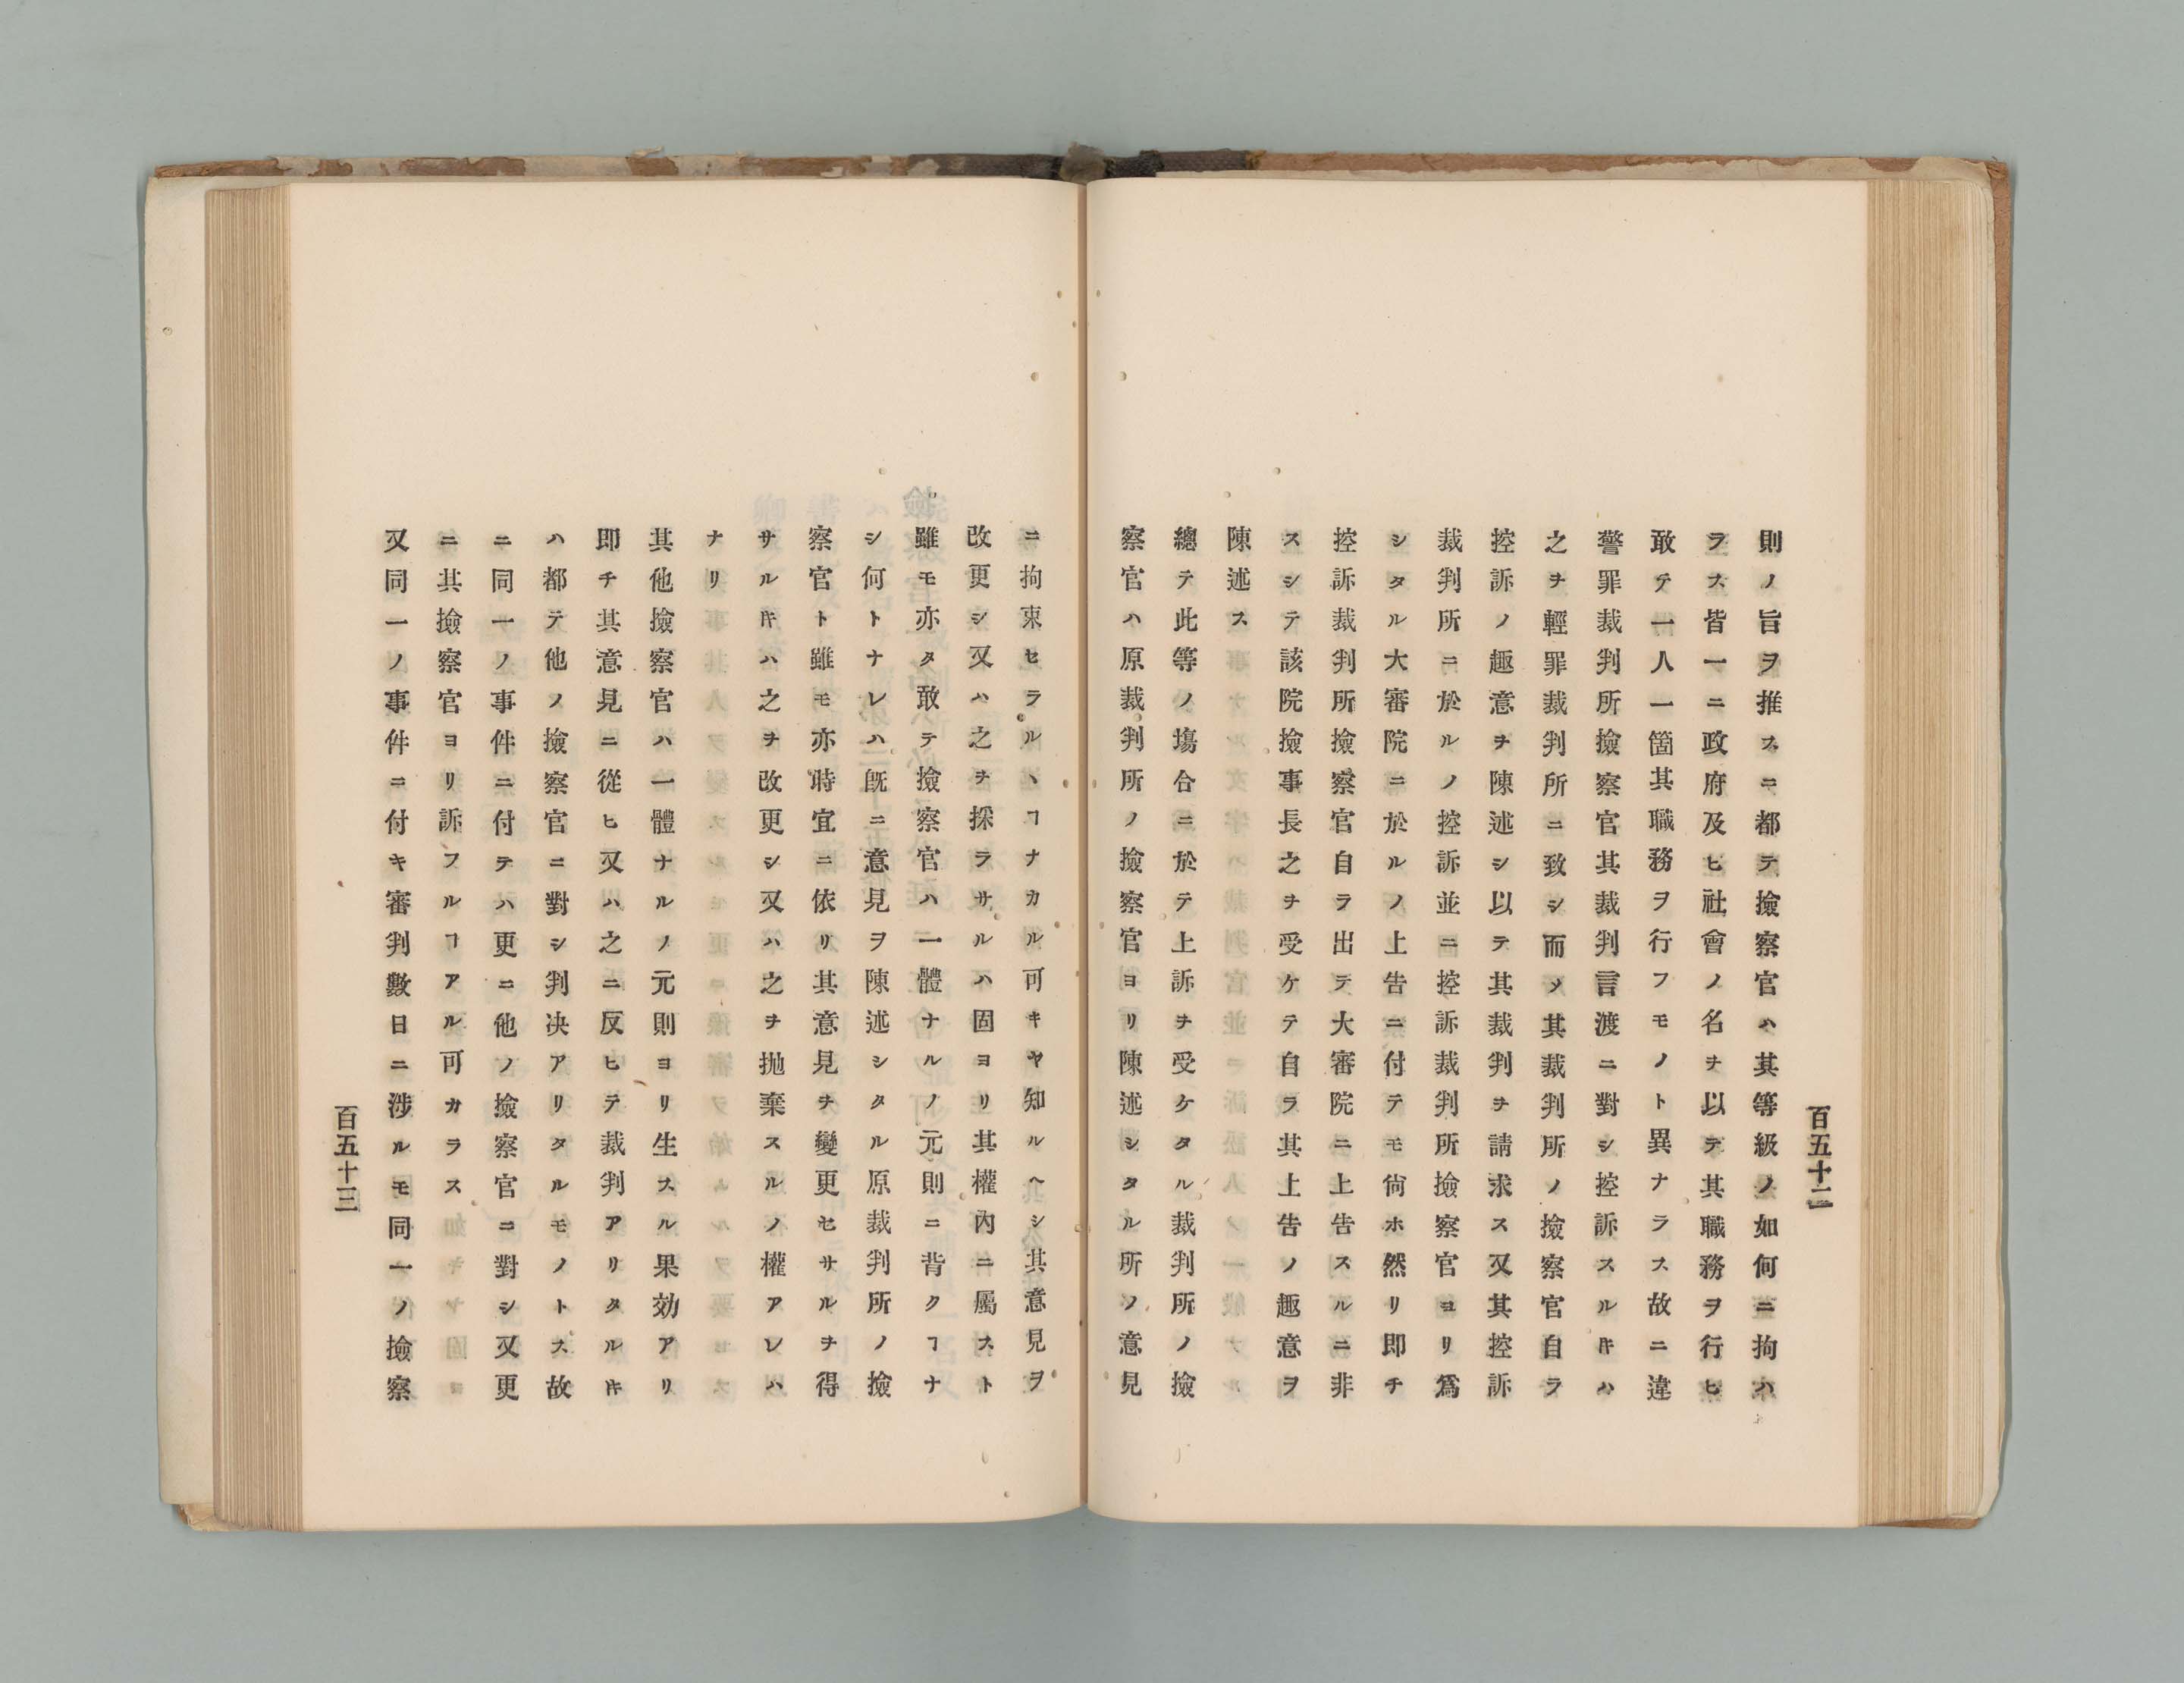 百五十二
則ノ旨ヲ推スニ都テ撿察官ハ其等級ノ如何ニ拘ハ
ラス皆一ニ政府及ヒ社會ノ名ヲ以テ其職務ヲ行ヒ
敢テ一人一箇其職務ヲ行フモノト異ナラス故ニ違
警罪裁判所撿察官其裁判言渡ニ對シ控訴スルキハ
之ヲ輕罪裁判所ニ致シ而メ其裁判所ノ撿察官自ラ
控訴ノ趣意ヲ陳述シ以テ其裁判ヲ請求ス又其控訴
裁判所ニ於ルノ控訴並ニ控訴裁判所撿察官ヨリ爲
シタル大審院ニ於ルノ上告ニ付テモ尙ホ然リ即チ
控訴裁判所撿察官自ラ出テ大審院ニ上告スルニ非
スシテ該院撿事長之ヲ受ケテ自ラ其上告ノ趣意ヲ
陳述ス
總テ此等ノ塲合ニ於テ上訴ヲ受ケタル裁判所ノ撿
察官ハ原裁判所ノ撿察官ヨリ陳述シタル所ノ意見
ニ拘束セラルヽヿナカル可キヤ知ルヘシ其意見ヲ
改更シ又ハ之ヲ採ラサルハ固ヨリ其權內ニ屬スト
雖モ亦タ敢テ撿察官ハ一體ナルノ元則ニ背クヿナ
シ何トナレハ旣ニ意見ヲ陳述シタル原裁判所ノ撿
察官ト雖モ亦時宜ニ依リ其意見ヲ變更セサルヲ得
サルキハ之ヲ改更シ又ハ之ヲ抛棄スルノ權アレハ
ナリ
其他撿察官ハ一體ナルノ元則ヨリ生スル果効アリ
即チ其意見ニ從ヒ又ハ之ニ反ヒテ裁判アリタルキ
ハ都テ他ノ撿察官ニ對シ判決アリタルモノトス故
ニ同一ノ事件ニ付テハ更ニ他ノ撿察官ニ對シ又更
ニ其撿察官ヨリ訴フルヿアル可カラス
又同一ノ事件ニ付キ審判數日ニ涉ルモ同一ノ撿察
百五十三